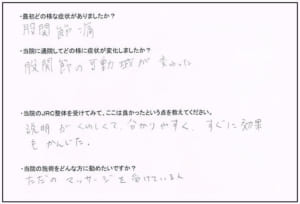 ・最初どの様な症状がありましたか？
股関節痛
・当院に通院してどの様に症状が変化しましたか？
股関節の可動域が変わった
・当院のJRC整体を受けてみて、ここは良かったという点を教えてください。
説明がくわしくて、分かりやすく、すぐに効果
もかんじた。
・当院の施術をどんな方に勧めたいですか？
ただのマッサージを受けている人